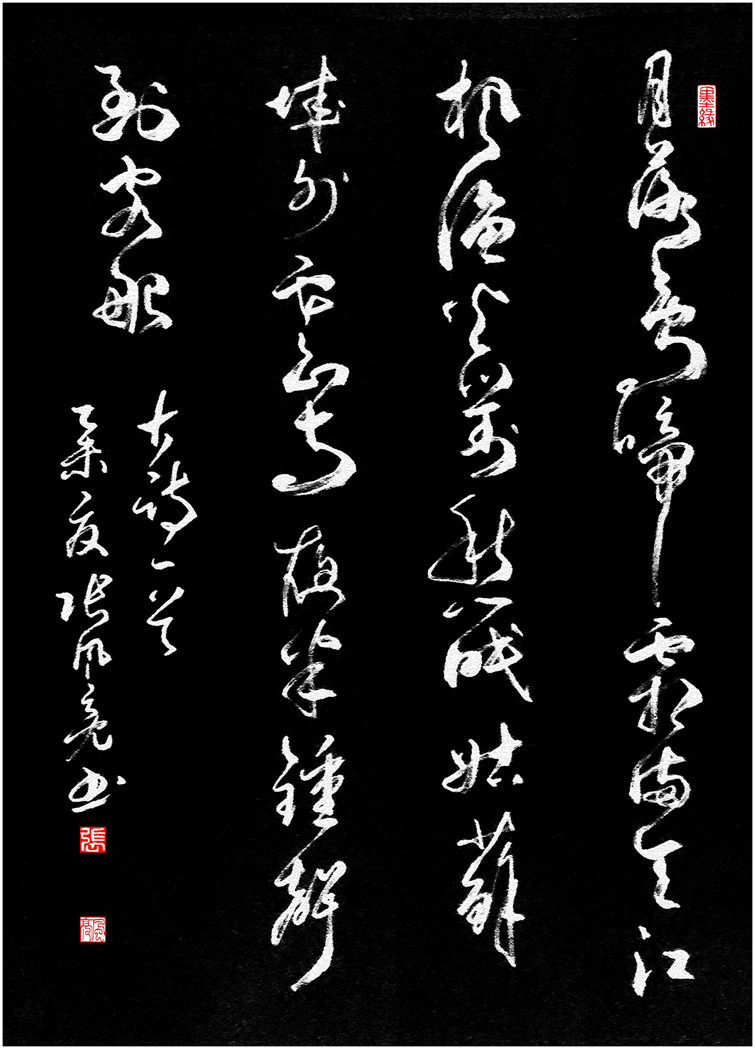 月落烏啼霜滿天江
楓漁火對愁眠姑蘇
城外寒山寺夜半鍾聲
到客船
古詩一首
乙未夏張風亮书
張
風亮